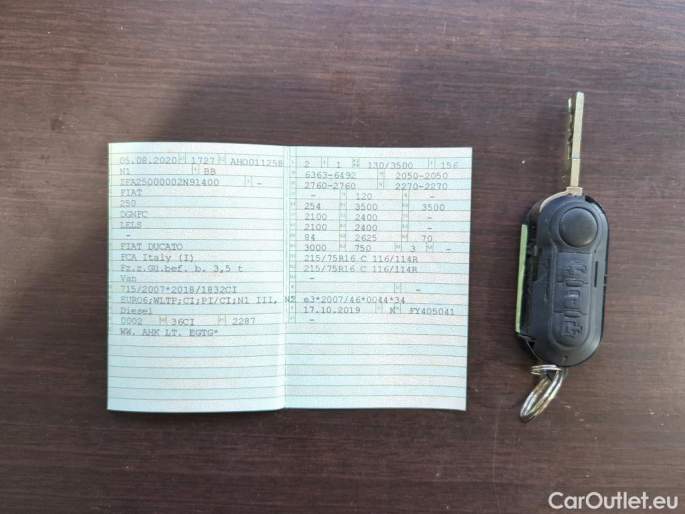 05.08.2020 1727 AHO011258
N1 BB
ZFA25000002N91400 -
FIAT
250
DGMFC
LELS
-
FIAT DUCATO
FCA Italy (I)
Fz.z.Gü.bef. b. 3,5 t
Van
715/2007*2018/1832CI
EURO6;WLTP;CI;PI/CI;N1 III, N2
Diesel
0002 36CI 2287
WW. AHK LT. EGTG*
2 1 130/3500 156
6363-6492 2050-2050
2760-2760 2270-2270
- 120 -
254 3500 3500
2100 2400 -
2100 2400 -
84 2625 70
3000 750 3 -
215/75R16 C 116/114R
215/75R16 C 116/114R
- -
e3*2007/46*0044*34
17.10.2019 K FY405041
-
FIAT
CarOutlet.eu